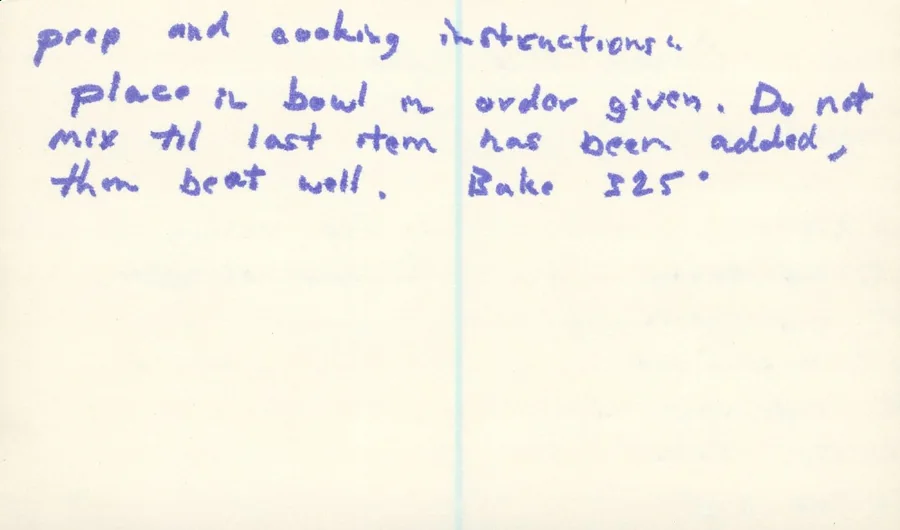 prep and cooking instructions:
place in bowl in order given. Do not
mix til last item has been added,
then beat well. Bake 325°